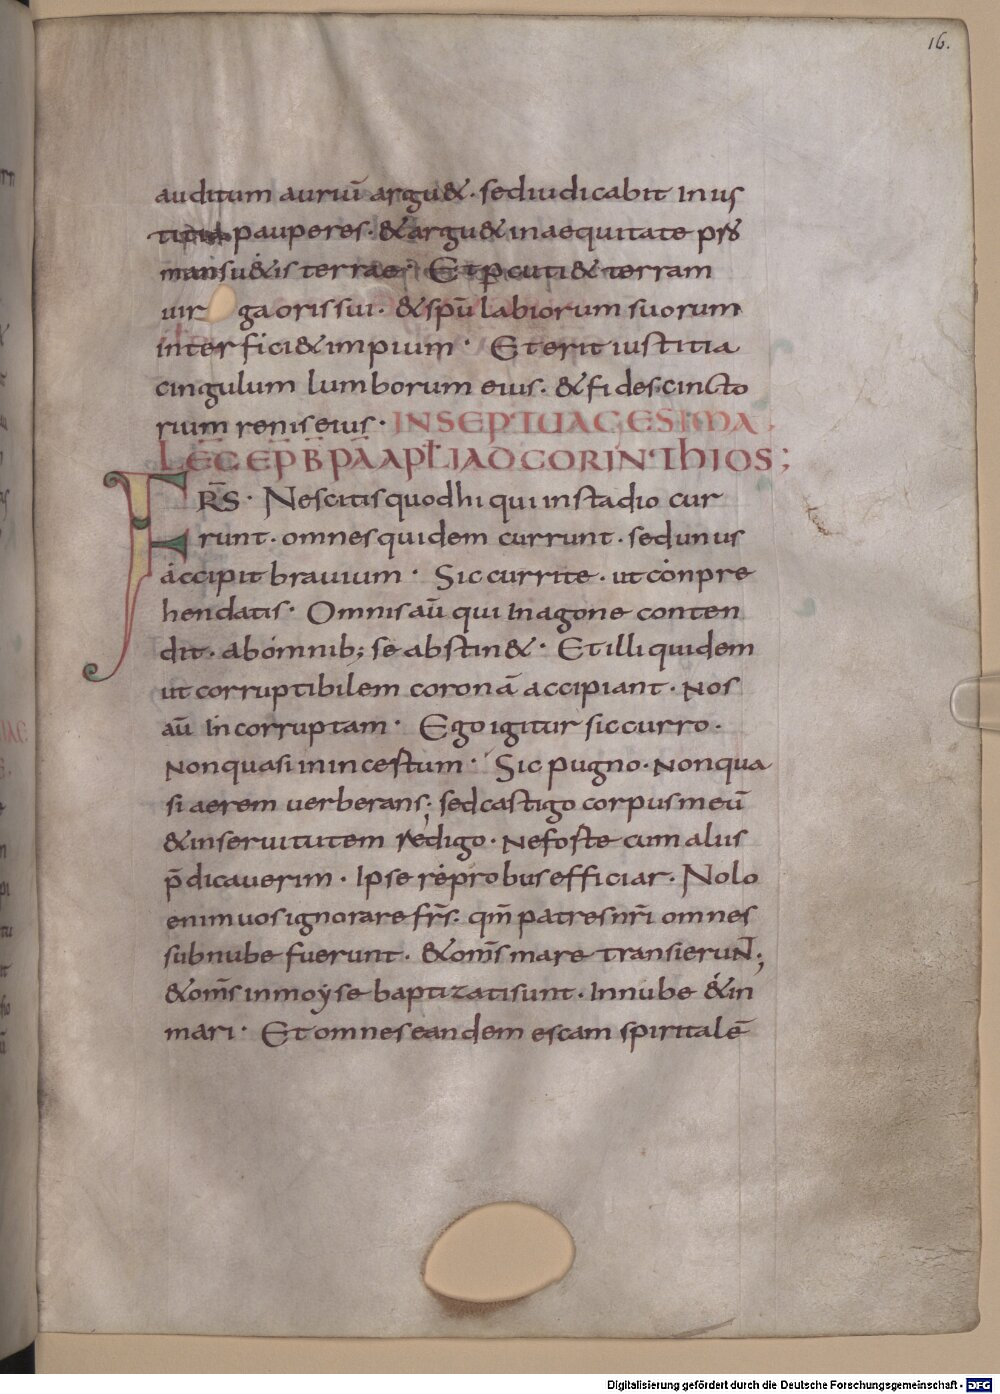 16.
auditum auriū argu&. sed iudicabit in ius
pauperes. & argu& in aequitate p̄
mansu&is terrae. Et ꝑcuti& terram
uirga oris sui. & sp̄u labiorum suorum
interfici& impium. Et erit iustitia
cingulum lumborum eius. & fides cincto
rium renis eius. IN SEPTUAGESIMA.
LEC̄ EP̄ B̄ PĀ APL̄I AD CORINTHIOS;
FR̄S. Nescitis quod hi qui in stadio cur
runt. omnes quidem currunt. sed unus
accipit brauium. Sic currite. ut conpre
hendatis. Omnis aū qui in agone conten
dit. ab omnib; se abstin&. Et illi quidem
ut corruptibilem coronā accipiant. Nos
aū incorruptam. Ego igitur sic curro.
Non quasi in incestum. Sic pugno. Non qua
si aerem uerberans; sed castigo corpus meū
& in seruitutem redigo. Ne foste cum aliis
p̄dicauerim. Ipse reprobus efficiar. Nolo
enim uos ignorare fr̄s. qm̄ patres nr̄i omnes
sub nube fuerunt. & om̄s mare transierunt;
& om̄s in moyse baptizati sunt. In nube & in
mari. Et omnes eandem escam spiritalē
Digitalisierung gefördert durch die Deutsche Forschungsgemeinschaft - DFG